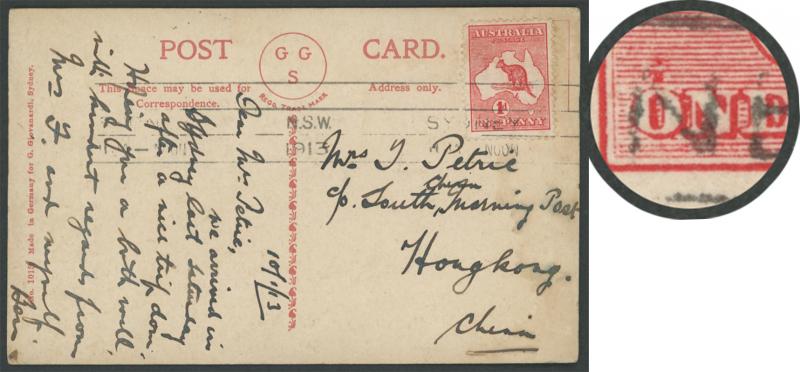 POST CARD.
G G
S
REGD. TRADE MARK
This space may be used for
Correspondence.
Address only.
AUSTRALIA
POSTAGE
1D
PENNY
N.S.W.
1913
NOON
No. 101 Made in Germany for G. Giovanardi, Sydney.
10/1/13
Dear Mr Petrie,
we arrived in
Sydney last Saturday
after a nice trip down
Hoping you a both well,
with kindest regards from
Mrs F. and myself
Mrs T. Petrie
c/o South China Morning Post
Hongkong.
China
ONE